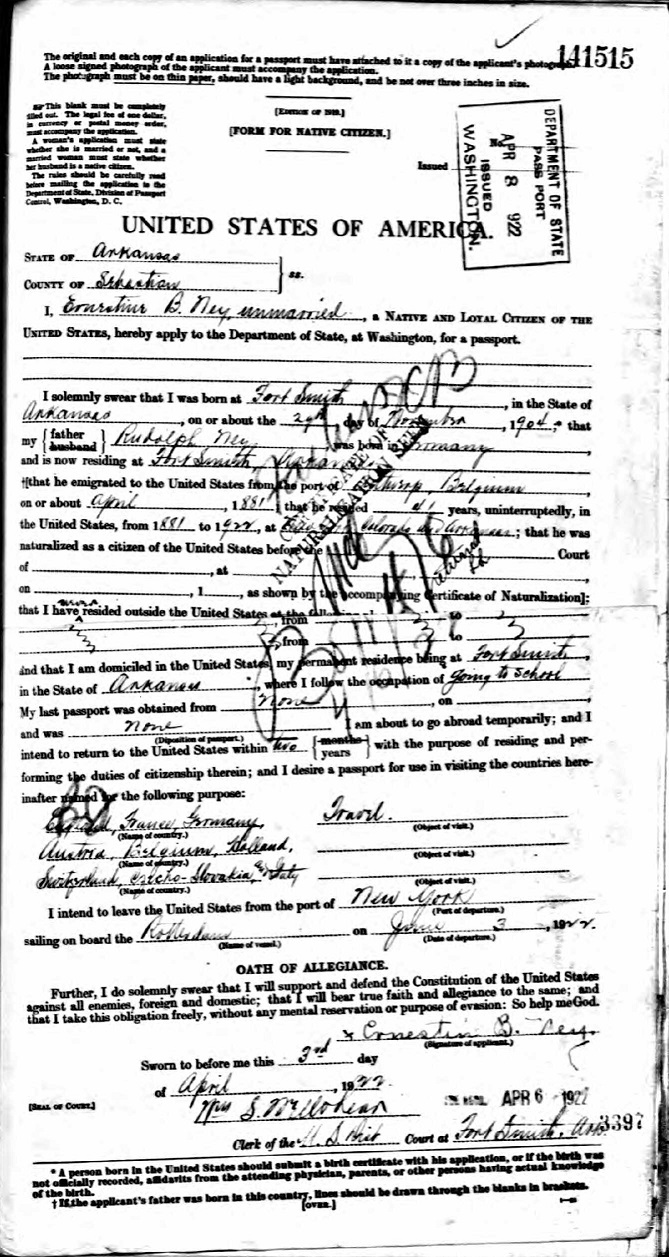 141515
The original and each copy of an application for a passport must have attached to it a copy of the applicant's photograph.
A loose signed photograph of the applicant must accompany the application.
The photograph must be on thin paper, should have a light background, and be not over three inches in size.
This blank must be completely
filled out. The legal fee of one dollar,
in currency or postal money order,
must accompany the application.
A woman's application must state
whether she is married or not, and a
married woman must state whether
her husband is a native citizen.
The rules should be carefully read
before mailing the application to the
Department of State, Division of Passport
Control, Washington, D. C.
[EDITION OF 1919.]
[FORM FOR NATIVE CITIZEN.]
Issued
DEPARTMENT OF STATE
PASS PORT
APR 8 922
ISSUED
WASHINGTON.
UNITED STATES OF AMERICA.
STATE OF Arkansas
COUNTY OF Sebastian
ss.
I, B. Ney, unmarried, a NATIVE AND LOYAL CITIZEN OF THE
UNITED STATES, hereby apply to the Department of State, at Washington, for a passport.
I solemnly swear that I was born at Fort Smith, in the State of
Arkansas, on or about the 29th day of November, 1904; that
my {father husband} Rudolph Ney was born in Germany
and is now residing at Fort Smith, Arkansas
†[that he emigrated to the United States from the port of Antwerp Belgium
on or about April, 1881; that he resided 41 years, uninterruptedly, in
the United States, from 1881 to 1922, at Colorado and Arkansas; that he was
naturalized as a citizen of the United States before the Court
of, at
on, 1, as shown by the accompanying Certificate of Naturalization];
that I have never resided outside the United States at the following
, from to
, from to
and that I am domiciled in the United States, my permanent residence being at Fort Smith,
in the State of Arkansas, where I follow the occupation of going to school
My last passport was obtained from None, on
and was none I am about to go abroad temporarily; and I
(Disposition of passport.)
intend to return to the United States within two {months years} with the purpose of residing and per-
forming the duties of citizenship therein; and I desire a passport for use in visiting the countries here-
inafter named for the following purpose:
England, France, Germany, Travel.
(Name of country.) (Object of visit.)
Austria, Belgium, Holland,
(Name of country.) (Object of visit.)
Switzerland, Czecho-Slovakia, & Italy
(Name of country.) (Object of visit.)
I intend to leave the United States from the port of New York
(Port of departure.)
sailing on board the Rotterdam on June 3, 1922.
(Name of vessel.) (Date of departure.)
OATH OF ALLEGIANCE.
Further, I do solemnly swear that I will support and defend the Constitution of the United States
against all enemies, foreign and domestic; that I will bear true faith and allegiance to the same; and
that I take this obligation freely, without any mental reservation or purpose of evasion: So help me God.
B. Ney.
(Signature of applicant.)
Sworn to before me this 3rd day
of April, 1922.
[SEAL OF COURT.]
APR 6 1922
Clerk of the U. S. Dist Court at Fort Smith, Ark.
3397
* A person born in the United States should submit a birth certificate with his application, or if the birth was
not officially recorded, affidavits from the attending physician, parents, or other persons having actual knowledge
of the birth.
† If the applicant's father was born in this country, lines should be drawn through the blanks in brackets.
[OVER.]